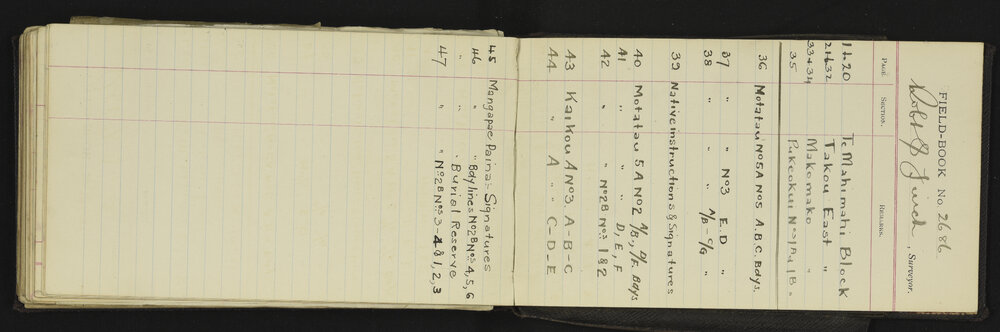 FIELD-BOOK No. 2686
Robt P. Finch, Surveyor.
PAGE. SECTION. REMARKS.
1 to 20 Te Mahimahi Block
21 to 32 Takou East "
33 + 34 Makomako "
35 Pukeokui No 1A & 1B "
36 Motatau No 5A No 5 A.B.C. Bdys.
37 " " No 3 E.D "
38 " " A/B - C/G "
39 Native instructions & Signatures
40 Motatau 5A No 2 A/B-, D/F Bdys
41 " " " D, E, F
42 " " No 2B Nos 1 & 2
43 Kaikou A No 3 A-B-C
44 " A " " C-D-E
45 Mangapae Paina = Signatures
46 " Bdy lines No 2B Nos 4, 5, 6
" " Burial Reserve
47 " " No 2B Nos 3-4 & 1, 2, 3